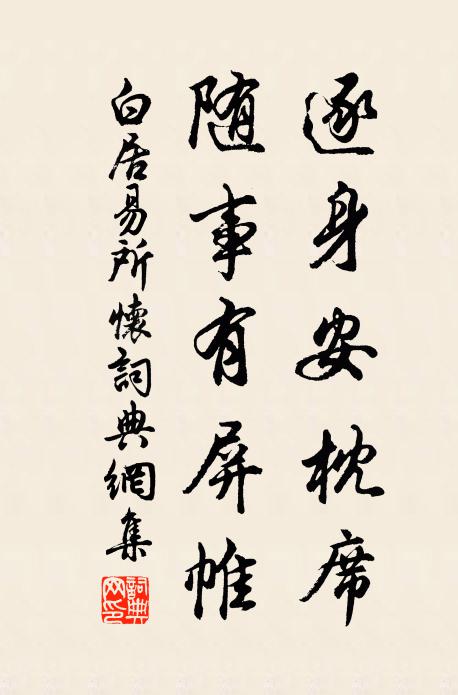 逐身安枕席
随事有屏帷
白居易所懷詞典網集
詞典網印